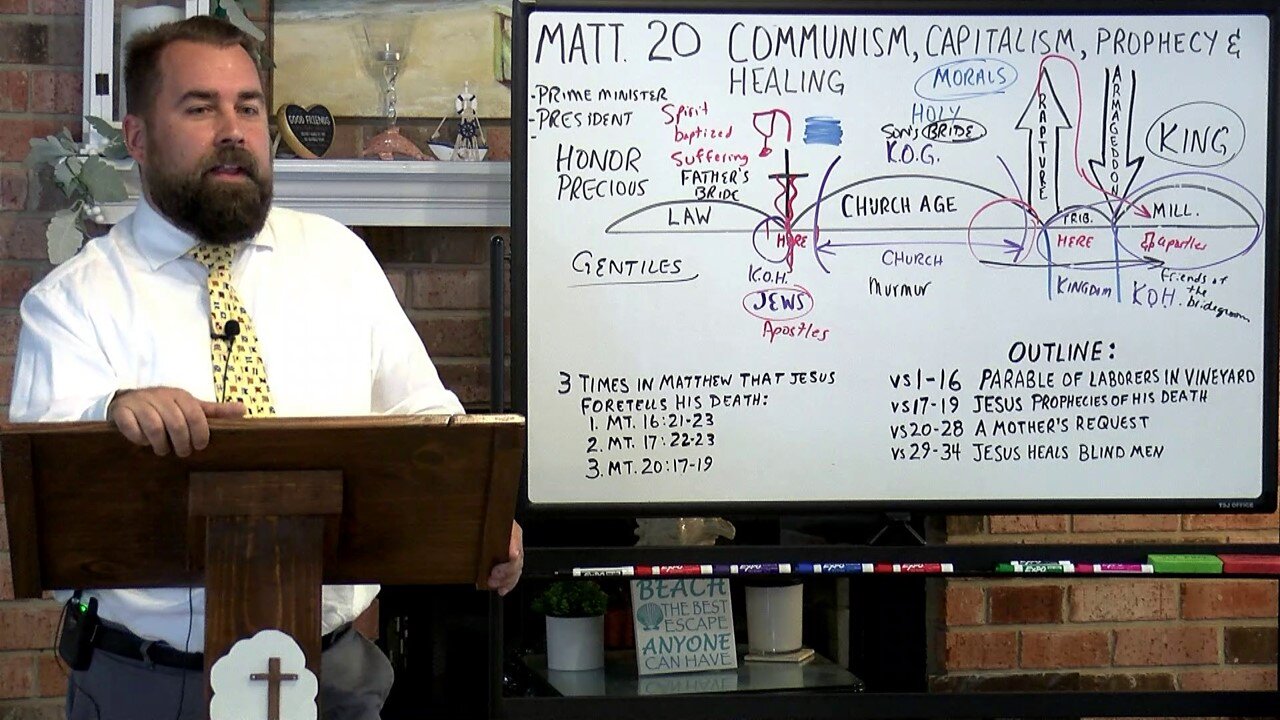 MATT. 20 COMMUNISM, CAPITALISM, PROPHECY &
HEALING
MORALS
-PRIME MINISTER
-PRESIDENT
-
HONOR
PRECIOUS
Spirit
baptized
Suffering
FATHER'S
BRIDE
HOLY
Son's BRIDE
K.O.G.
RAPTURE
ARMAGEDDON
KING
LAW
CHURCH AGE
TRIB.
MILL.
HERE
HERE
Apostles
GENTILES
K.O.H.
JEWS
Apostles
CHURCH
Murmur
KINGDOM
K.O.H.
Friends of
the
bridegroom
3 TIMES IN MATTHEW THAT JESUS
FORETELLS HIS DEATH:
1. MT. 16:21-23
2. MT. 17:22-23
3. MT. 20:17-19
OUTLINE:
VS1-16 PARABLE OF LABORERS IN VINEYARD
VS17-19 JESUS PROPHECIES OF HIS DEATH
VS20-28 A MOTHER'S REQUEST
VS29-34 JESUS HEALS BLIND MEN
TSJ OFFICE
GOOD FRIENDS
EXPO
EXPO
EXPO
EXPO
EXPO
EXPO
EXPO
BEACH
THE BEST
ESCAPE
ANYONE
CAN HAVE